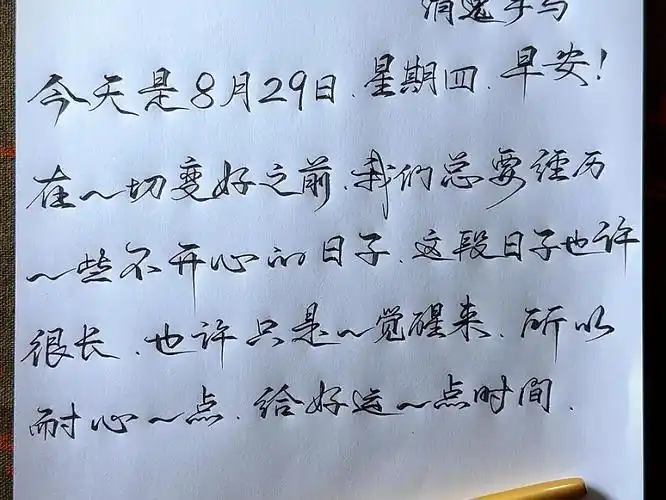 消鬼手写
今天是8月29日.星期四.早安!
在一切变好之前.我们总要经历
一些不开心的日子.这段日子也许
很长.也许只是一觉醒来.所以
耐心一点.给好运一点时间.